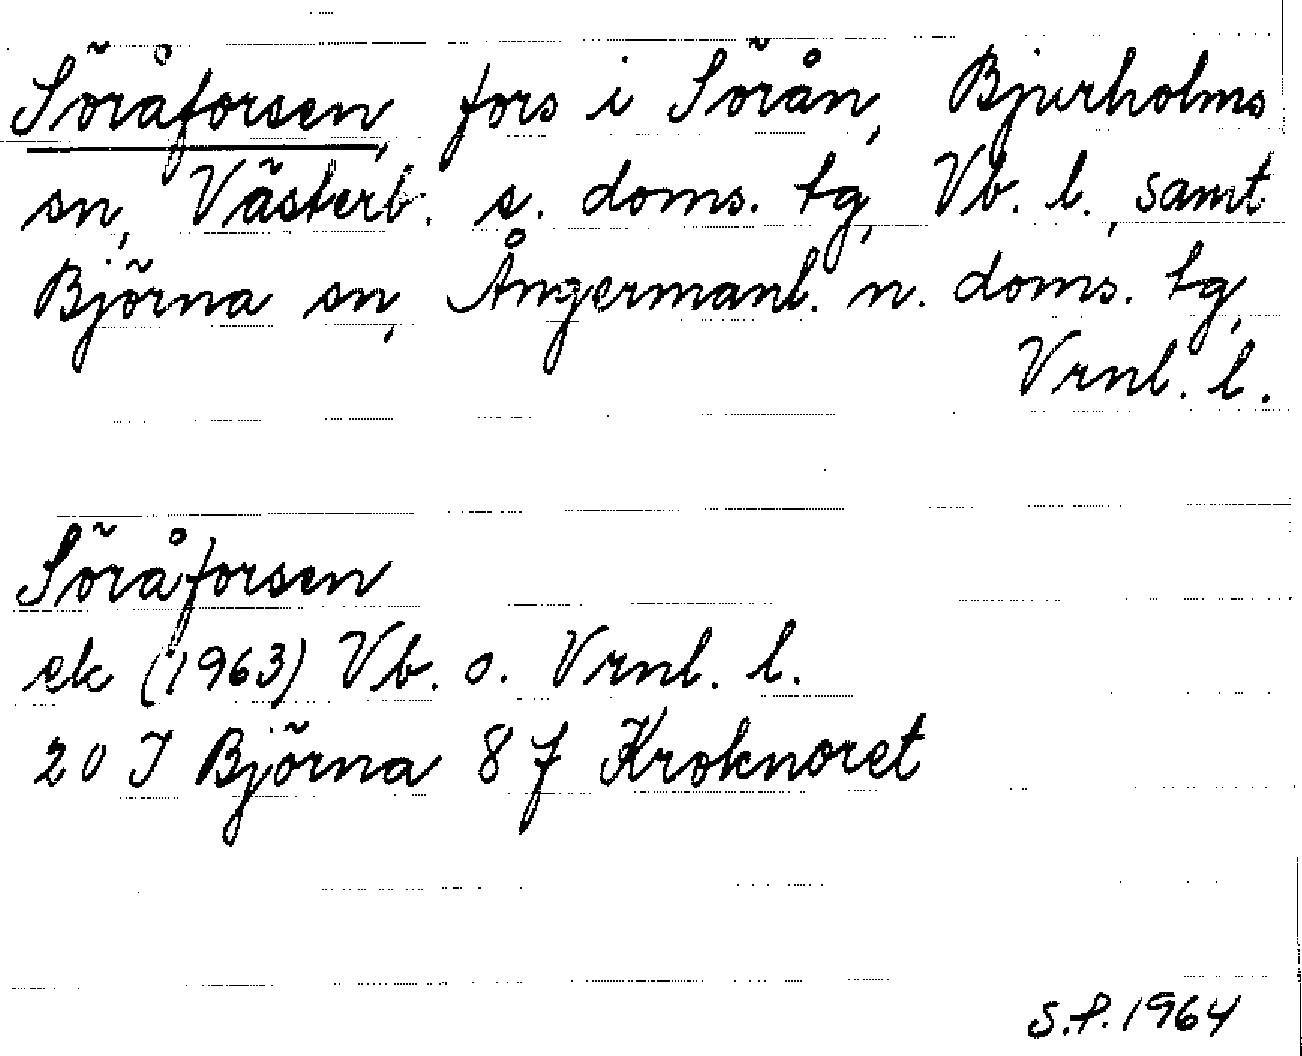 Söråforsen, fors i Sörån, Bjurholms
sn, Västerb. s. doms. tg, Vb. l., samt
Björna sn, Ångermanl. n. doms. tg,
Vrnl. l.
Söråforsen
ek (1963) Vb. o. Vrnl. l.
20 J Björna 8 f Kroknoret
S.P. 1964